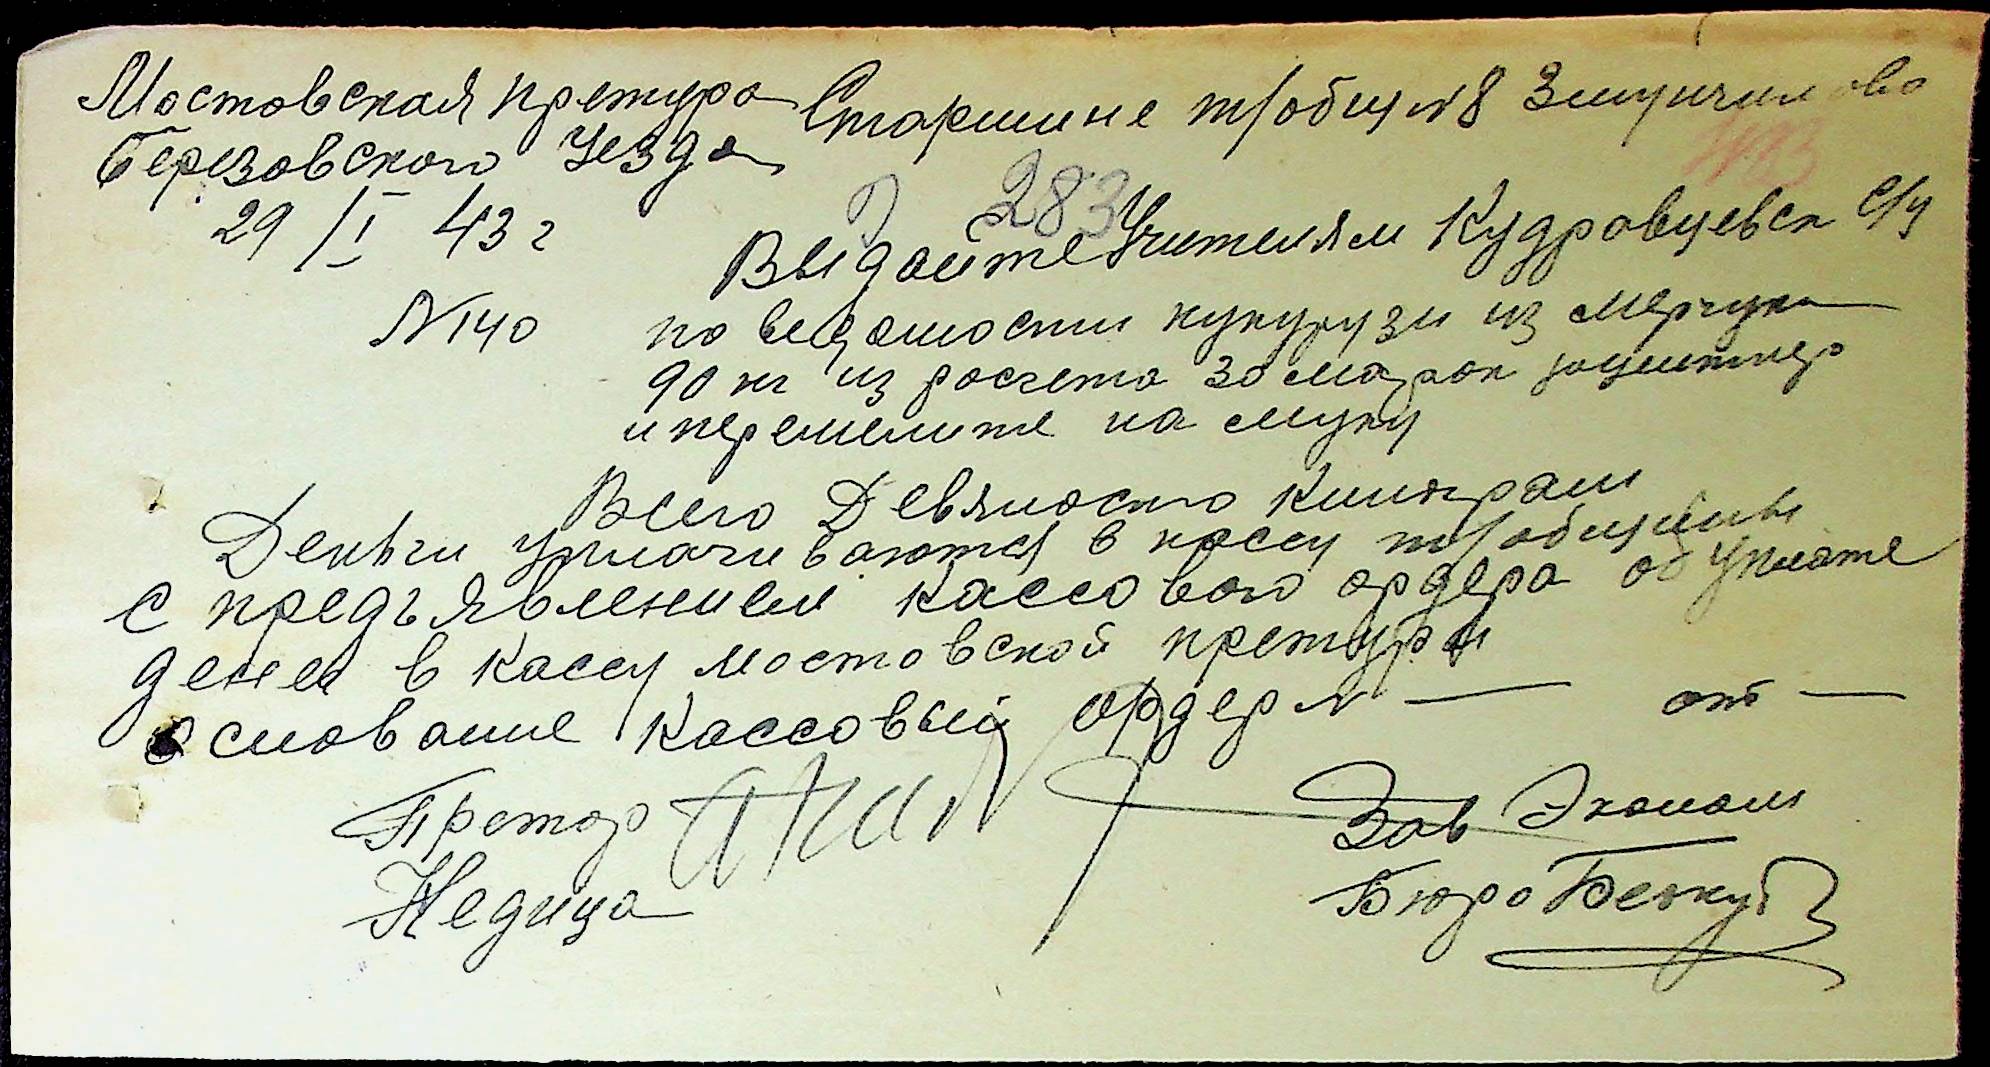 Мостовская претура
Березовского уезда
29/I 43 г
N 140
Старшине т/общ N8
283
Выдайте Учителям Кудравцевск с/у
по ведомости кукурузи из мерчука
90 кг из росчета 30 марок зацентнер
и перемелите на муку
Всего Девяносто килограм
Деньги уплачиваются в кассу т/общины
с предъявлением кассового ордера об уплате
денег в кассу мостовской претуры
основание кассовый ордер N — от —
Претор
Недица
Зав Эконом
Бюро